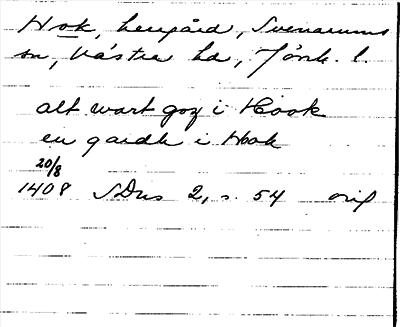 Hook, herrgård, Svenarums
sn, Västra hd, Jönk. l.
alt wart goz i Hook
en gardh i Hook
20/8
1408 SDns 2, s. 54 orig